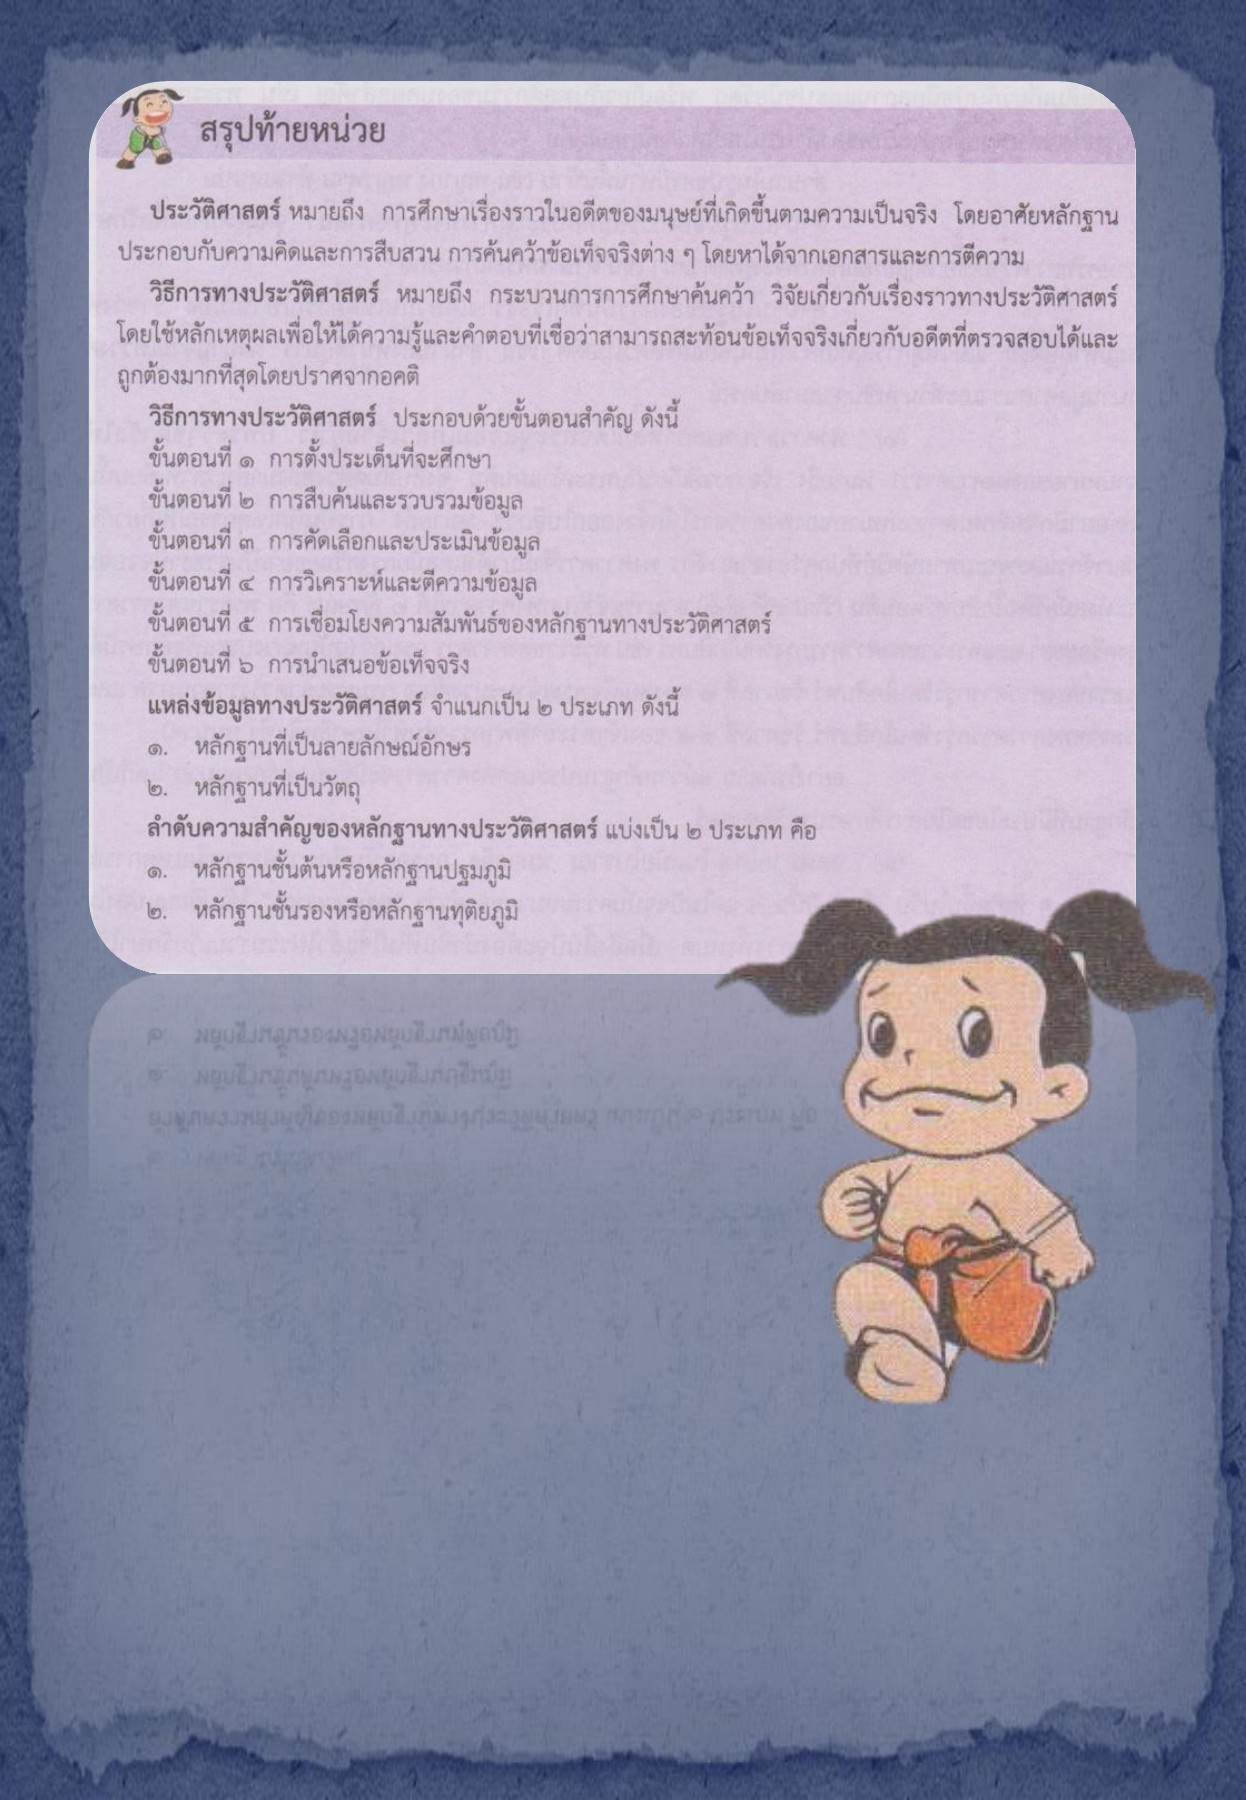 สรุปท้ายหน่วย
ประวัติศาสตร์ หมายถึง การศึกษาเรื่องราวในอดีตของมนุษย์ที่เกิดขึ้นตามความเป็นจริง โดยอาศัยหลักฐาน
ประกอบกับความคิดและการสืบสวน การค้นคว้าข้อเท็จจริงต่าง ๆ โดยหาได้จากเอกสารและการตีความ
วิธีการทางประวัติศาสตร์ หมายถึง กระบวนการการศึกษาค้นคว้า วิจัยเกี่ยวกับเรื่องราวทางประวัติศาสตร์
โดยใช้หลักเหตุผลเพื่อให้ได้ความรู้และคำตอบที่เชื่อว่าสามารถสะท้อนข้อเท็จจริงเกี่ยวกับอดีตที่ตรวจสอบได้และ
ถูกต้องมากที่สุดโดยปราศจากอคติ
วิธีการทางประวัติศาสตร์ ประกอบด้วยขั้นตอนสำคัญ ดังนี้
ขั้นตอนที่ ๑ การตั้งประเด็นที่จะศึกษา
ขั้นตอนที่ ๒ การสืบค้นและรวบรวมข้อมูล
ขั้นตอนที่ ๓ การคัดเลือกและประเมินข้อมูล
ขั้นตอนที่ ๔ การวิเคราะห์และตีความข้อมูล
ขั้นตอนที่ ๕ การเชื่อมโยงความสัมพันธ์ของหลักฐานทางประวัติศาสตร์
ขั้นตอนที่ ๖ การนำเสนอข้อเท็จจริง
แหล่งข้อมูลทางประวัติศาสตร์ จำแนกเป็น ๒ ประเภท ดังนี้
๑. หลักฐานที่เป็นลายลักษณ์อักษร
๒. หลักฐานที่เป็นวัตถุ
ลำดับความสำคัญของหลักฐานทางประวัติศาสตร์ แบ่งเป็น ๒ ประเภท คือ
๑. หลักฐานชั้นต้นหรือหลักฐานปฐมภูมิ
๒. หลักฐานชั้นรองหรือหลักฐานทุติยภูมิ